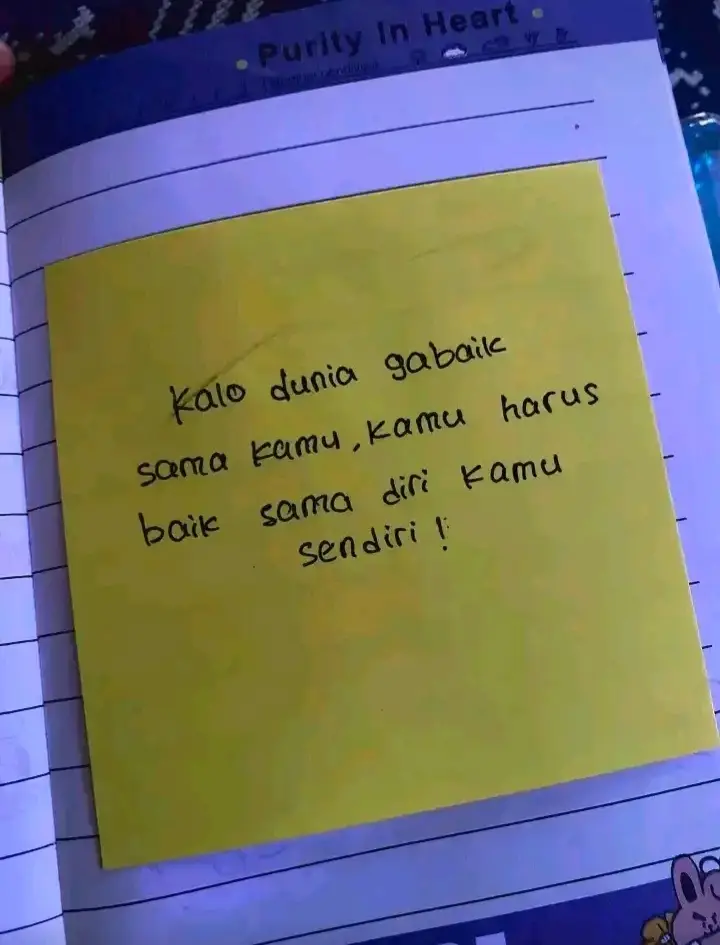 Purity In Heart
Kalo dunia gabaik
sama kamu, kamu harus
baik sama diri kamu
sendiri !